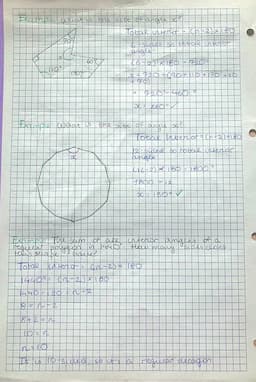 Example what is the size of angle x?
Total interior = (n-2) × 180
(6-2) × 180 = 720°
= 720° - 460°
x = 260° ✓
70°
60°
110°
Example what is the size of angle x?
Total interior = (n-2) × 180
12 sided so total interior
angle
(12-2) × 180 = 1800°
1800 ÷ 12
x = 150° ✓
x
Example The sum of all interior angles of a
regular polygon is 1440° How many sides does
this shape have?
Total interior = (n-2) × 180
1440° = (n-2) × 180
1440 ÷ 180 = n-2
8 = n-2
8+2 = n
10 = n
n = 10
It is 10-sided, so it's a regular decagon